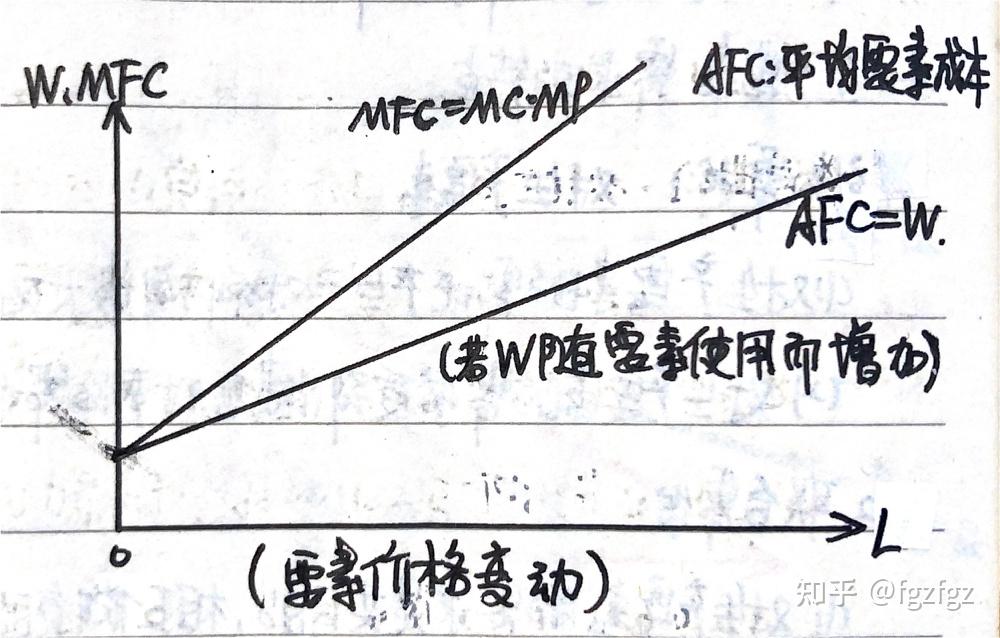 W、MFC
MFC=MC·MP
AFC:平均要素成本
AFC=W.
(若W随要素使用而增加)
0
L
(要素价格变动)
知乎 @fgzfgz